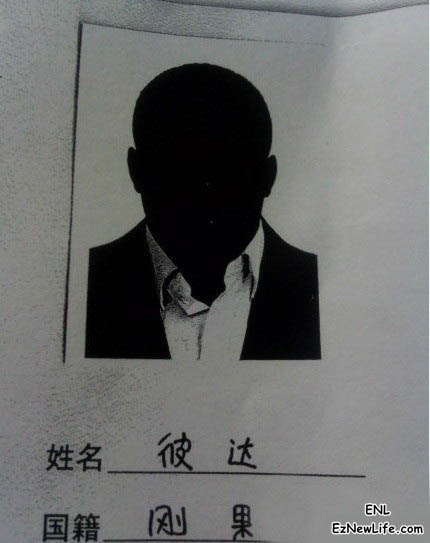 姓名 彼 达
国籍 刚 果
ENL
EzNewLife.com